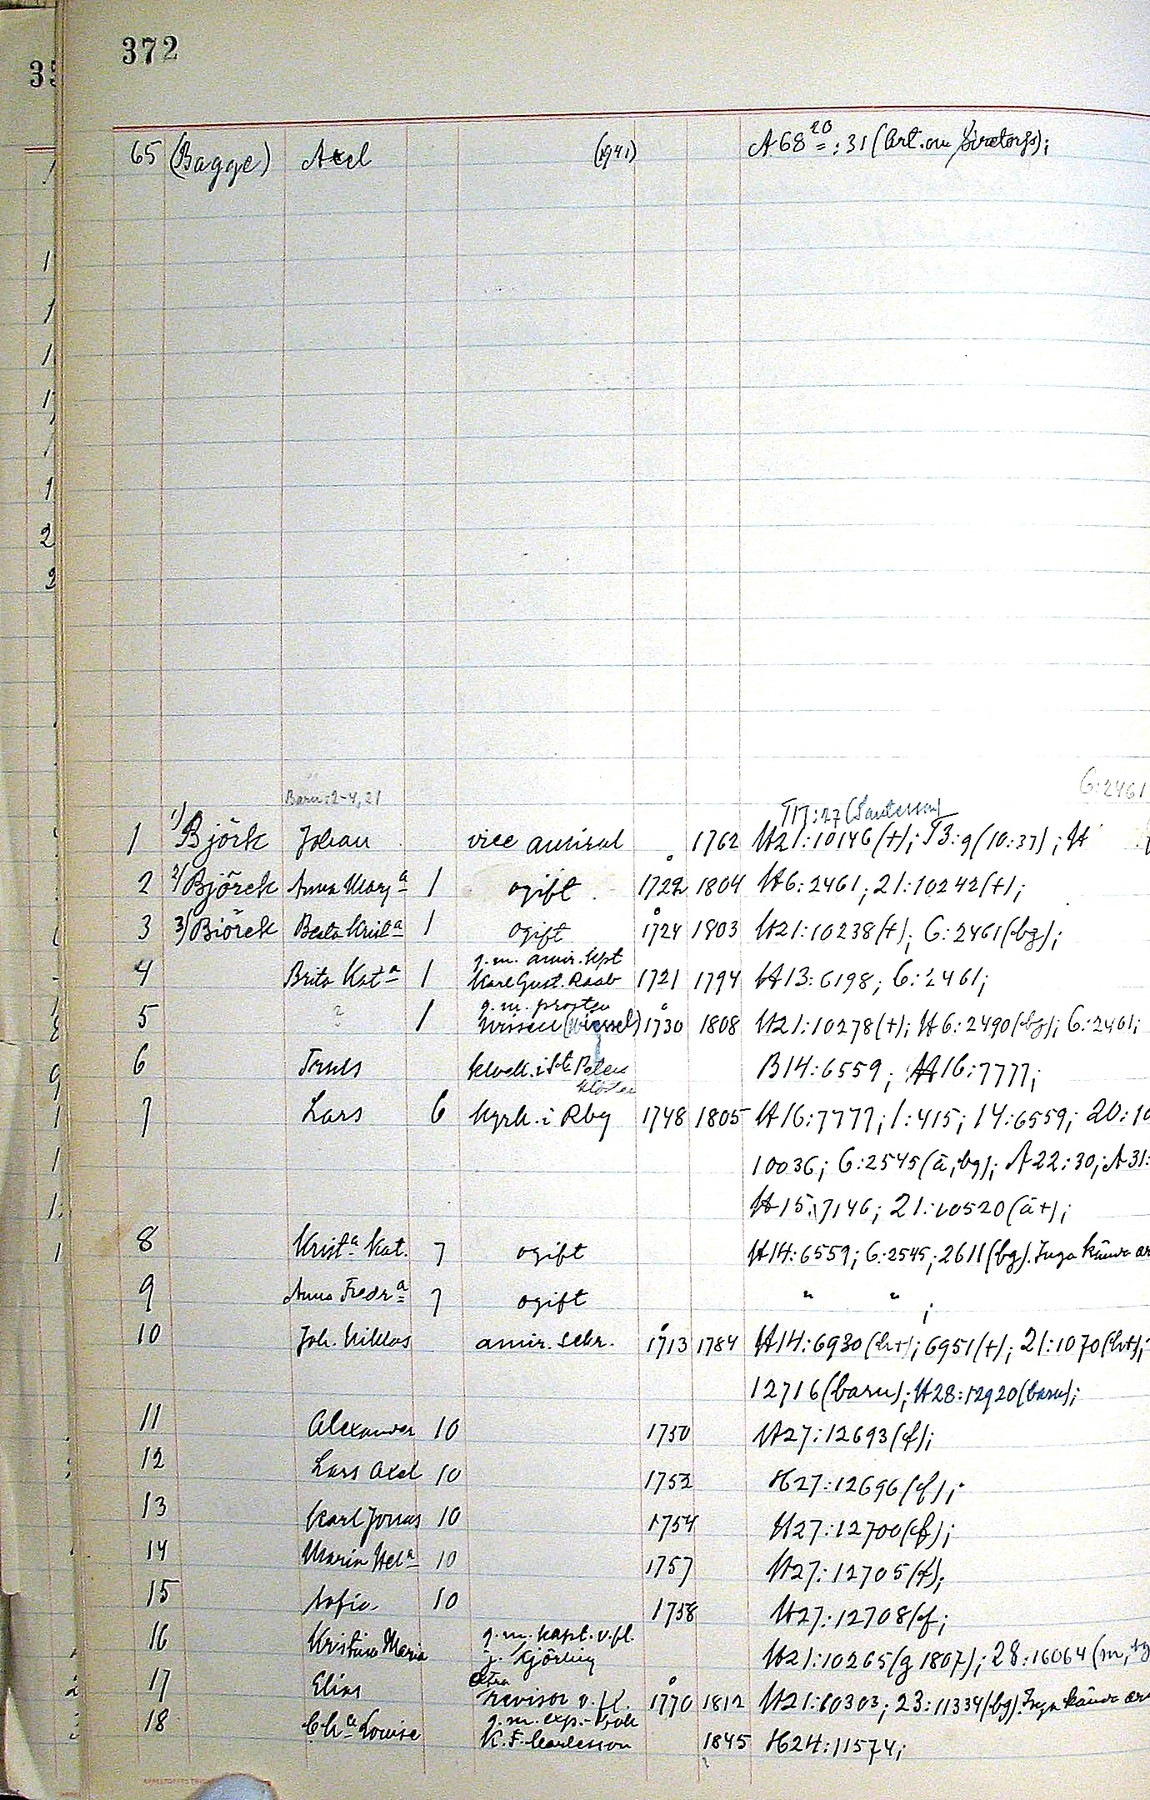 372
65 (Bagge) Axel (1941) A68 20 = : 31 (Art. om Siretorp);
Barn: 2-4, 21 G:2461
T17:27 (Santesson)
1 1) Björk Johan vice amiral 1762 H21:10146(+); T3:9(10:37); H
2 2) Björck Anna Marg a 1 ogift 1722 1804 H6:2461; 21:10242(+);
3 3) Biörck Beata Krist a 1 ogift 1724 1803 H21:10238(+); 6:2461(bg);
4 Brita Kat a 1 g.m. amir. kpt Karl Gust. Raab 1721 1794 H13:6198; 6:2461;
5 ? 1 g.m. prosten Nissen (Wiessel) 1730 1808 H21:10278(+); H6:2490(bg); 6:2461;
6 Truls klock. i St. Peters kloster B14:6559; H16:7777;
7 Lars 6 kyrkh. i Rby 1748 1805 H16:7777; 1:415; 14:6559; 20:10
10036; 6:2545(ä, bg); A22:30; A31:
H15:7146; 21:10520(ä+);
8 Krist a Kat. 7 ogift H14:6559; 6:2545; 2611(bg). Inga kända ar
9 Anna Fredr a 7 ogift " " ;
10 Joh. Niklas amir. sekr. 1713 1784 H14:6930(h+); 6951(+); 21:1070(h+);
12716(barn); H28:12920(barn);
11 Alexander 10 1750 H27:12693(f);
12 Lars Axel 10 1752 H27:12696(f);
13 Karl Jonas 10 1754 H27:12700(f);
14 Maria Hel a 10 1757 H27:12705(f);
15 Sofia 10 1758 H27:12708(f;
16 Kristina Maria g.m. kapt. v. fl. J. Kjörling H21:10265(g 1807); 28:16064(m,
17 Elias extra revisor v. 1770 1812 H21:10303; 23:11334(bg). Inga kända ar
18 Ch a Lovise g.m. exp. K. F. Carlesson 1845 H24:11574;